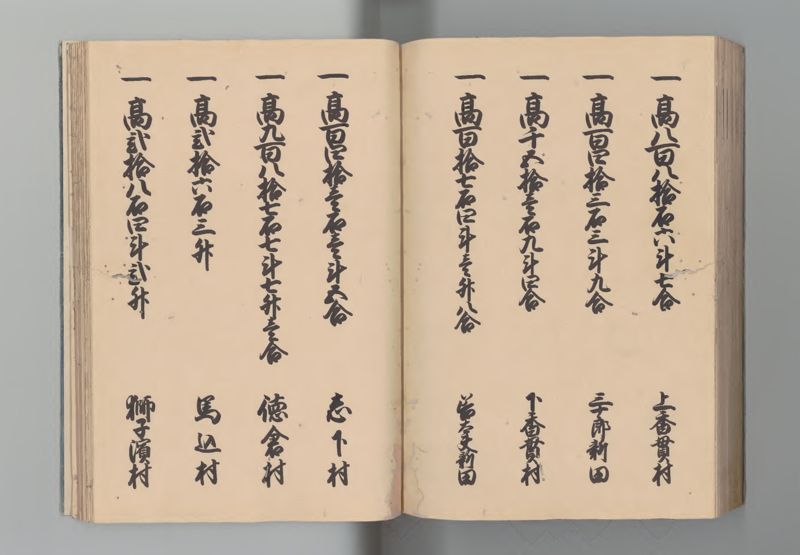 一 高八百八拾石六斗七合 上香貫村
一 高百四拾三石三斗九合 三十郎新田
一 高千五拾壱石九斗四合 下香貫村
一 高百拾七石四斗壱升八合 善太夫新田
一 高百四拾壱石壱斗五合 志下村
一 高九百八拾七石七斗七升壱合 徳倉村
一 高弐拾六石三升 馬込村
一 高弐拾八石四斗弐升 獅子濱村